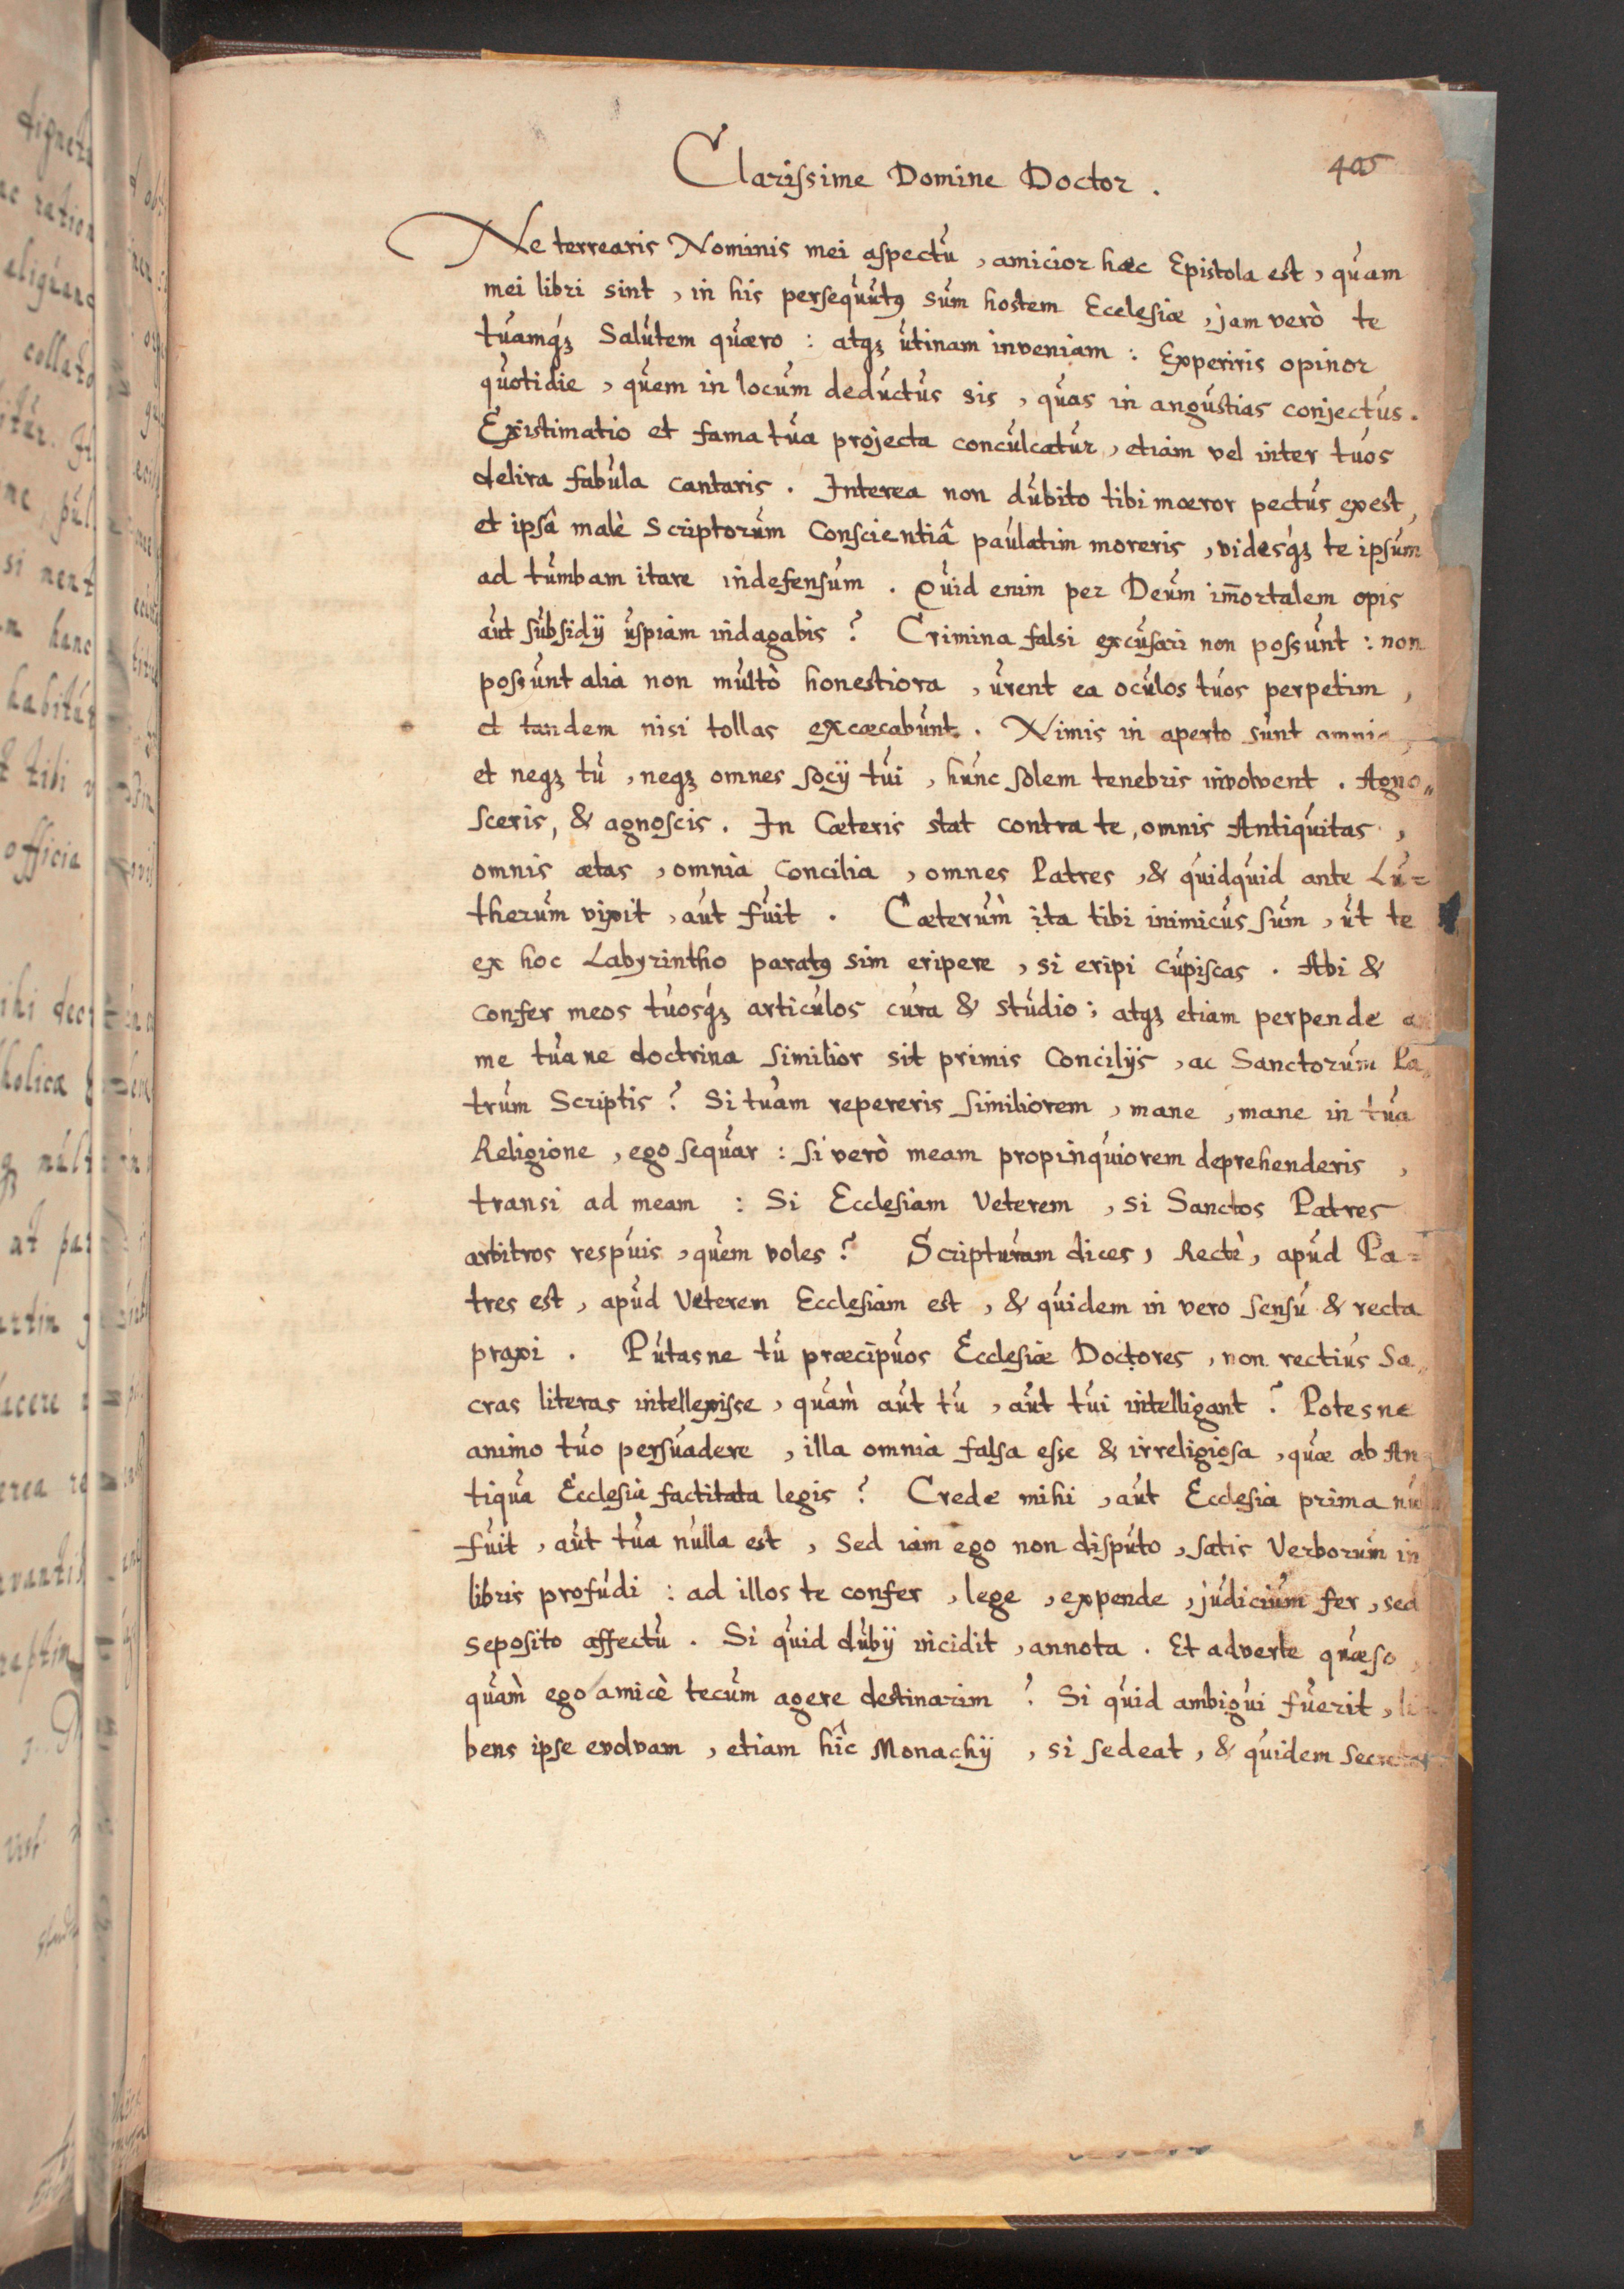 405
Clarissime Domine Doctor.
Ne terrearis Nominis mei aspectu, amicior hæc Epistola est, quam
mei libri sint, in his persequutꝰ sum hostem Ecclesiæ, jam verò te
tuamqꝫ Salutem quæro: atqꝫ utinam inveniam: Experiris opinor
quotidie, quem in locum deductus sis, quas in angustias conjectus.
Existimatio et fama tua projecta conculcatur, etiam vel inter tuos
delira fabula cantaris. Interea non dubito tibi mœror pectus exest,
et ipsâ malè Scriptorum Conscientiâ paulatim moreris, videsqꝫ te ipsum
ad tumbam itare indefensum. Quid enim per Deum im̄ortalem opis
aut subsidij uspiam indagabis? Crimina falsi excusari non possunt: non
possunt alia non multò honestiora, urent ea oculos tuos perpetim,
et tandem nisi tollas excæcabunt. Nimis in aperto sunt omnia,
et neqꝫ tu, neqꝫ omnes socij tui, hunc solem tenebris involvent. Agno„
sceris, & agnoscis. In Cæteris stat contra te, omnis Antiquitas,
omnis ætas, omnia Concilia, omnes Patres, & quidquid ante Lu=
therum vixit, aut fuit. Cæterum̀ ita tibi inimicus sum, ut te
ex hoc Labyrintho paratꝰ sim eripere, si eripi cupiscas. Abi &
confer meos tuosqꝫ articulos cura & studio; atqꝫ etiam perpende
me tuane doctrina similior sit primis Concilijs, ac Sanctorum Pa„
trum Scriptis? Si tuam repereris similiorem, mane, mane in tua
Religione, ego sequar: si verò meam propinquiorem deprehenderis,
transi ad meam: Si Ecclesiam Veterem, si Sanctos Patres
arbitros respuis, quem voles? Scripturam dices, Rectè, apud Pa=
tres est, apud Veterem Ecclesiam est, & quidem in vero sensu & recta
praxi. Putasne tu præcipuos Ecclesiæ Doctores, non rectius Sa„
cras literas intellexisse, quam̀ aut tu, aut tui intelligant? Potesne
animo tuo persuadere, illa omnia falsa esse & irreligiosa, quæ ab An
tiqua Ecclesia factitata legis? Crede mihi, aut Ecclesia prima
fuit, aut tua nulla est, Sed iam ego non disputo, satis Verborum in
libris profudi: ad illos te confer, lege, expende, judicium fer, sed
seposito affectu. Si quid dubij incidit, annota. Et adverte quæso,
quam̀ ego amicè tecum agere destinarim? Si quid ambigui fuerit, li
bens ipse evolvam, etiam hîc Monachij, si sedeat, & quidem